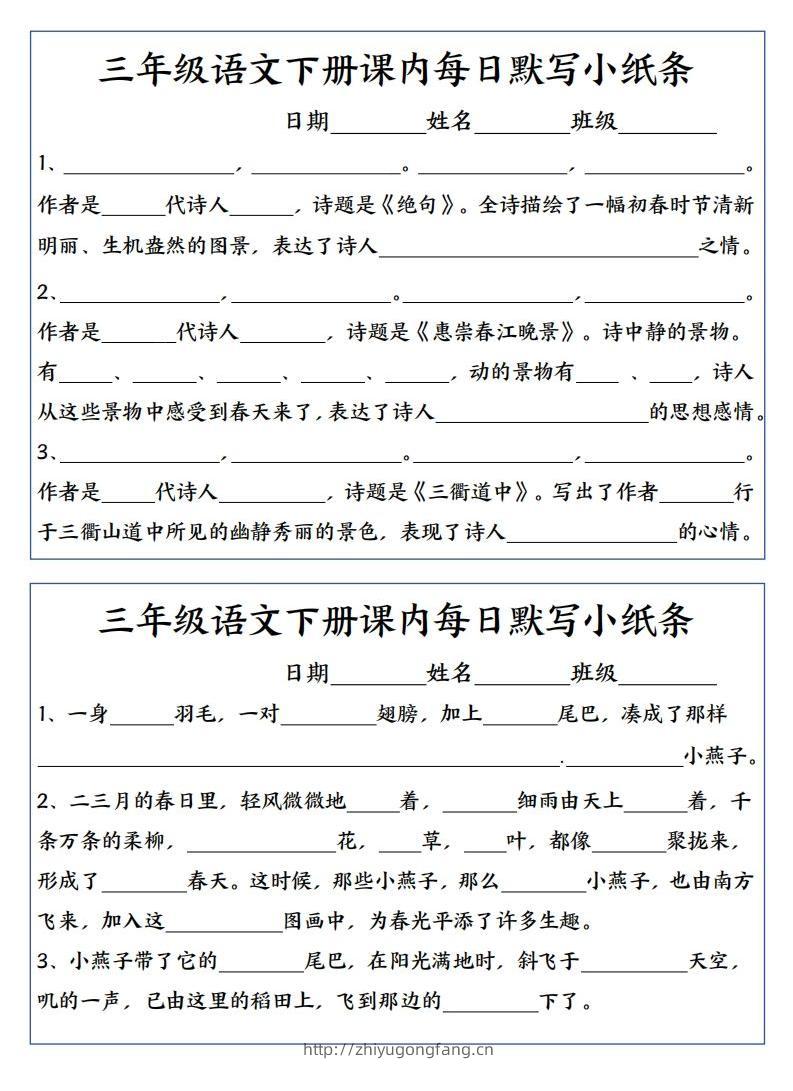 三年级语文下册课内每日默写小纸条
日期_________姓名_________班级_________
1、________________，______________。______________，_______________。
作者是______代诗人______，诗题是《绝句》。全诗描绘了一幅初春时节清新
明丽、生机盎然的图景，表达了诗人______________________________之情。
2、_______________，_______________。________________，_______________。
作者是_______代诗人________，诗题是《惠崇春江晚景》。诗中静的景物。
有_____、______、______、______、______，动的景物有____ 、____，诗人
从这些景物中感受到春天来了，表达了诗人____________________的思想感情。
3、_______________，________________。_______________，_______________。
作者是_____代诗人__________，诗题是《三衢道中》。写出了作者_______行
于三衢山道中所见的幽静秀丽的景色，表现了诗人________________的心情。
三年级语文下册课内每日默写小纸条
日期_________姓名_________班级_________
1、一身______羽毛，一对_________翅膀，加上_______尾巴，凑成了那样
_________________________________________________.___________小燕子。
2、二三月的春日里，轻风微微地_____着，_______细雨由天上______着，千
条万条的柔柳，______________花，____草，____叶，都像_______聚拢来，
形成了________春天。这时候，那些小燕子，那么________小燕子，也由南方
飞来，加入这___________图画中，为春光平添了许多生趣。
3、小燕子带了它的________尾巴，在阳光满地时，斜飞于__________天空，
叽的一声，已由这里的稻田上，飞到那边的_________下了。
http://zhiyugongfang.cn